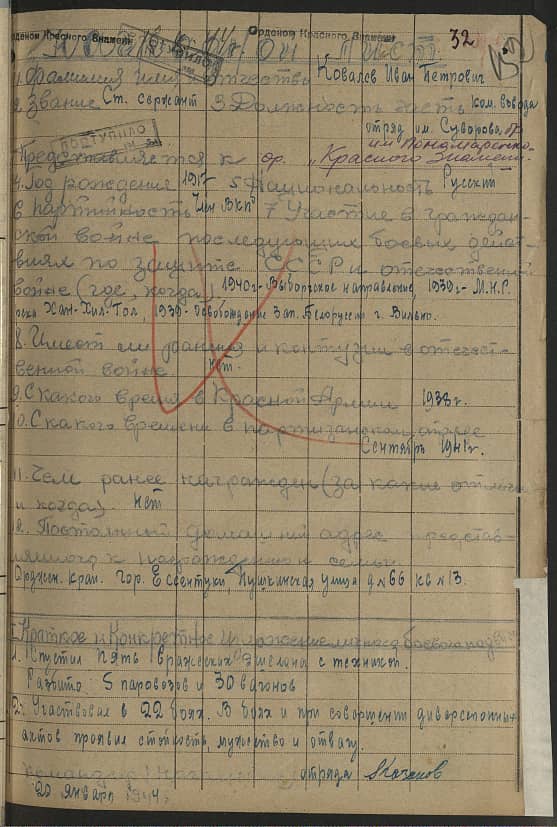 рденом Красного Знамени Орденом Красного Знамени 32
Наградной лист
1. Фамилия имя отчество Ковалев Иван Петрович
2. Звание Ст. сержант 3 Должность часть Ком. взвода
отряд им. Суворова бр.
ПОСТУПИЛО им Понамаренко
Представляется к ор. „Красного Знамени"
4. Год рождения 1917 5. Национальность Русский
6 партийность Член ВКПб 7 Участие в граждан-
ской войне последующих боевых дейст-
виях по защите СССР и отечествен
войне (где, когда) 1940г-Выборгское направление, 1939г- М.Н.Р.
река Хал-Хил-Гол, 1939- Освобождение Зап. Белоруссии г. Вильно.
8. Имеет ли ранения и контузии в отечест-
венной войне нет.
9. С какого время в Красной Армии 1938г.
10. С какого времени в партизанском отряде
Сентябрь 1941г.
11. Чем ранее награжден (за какие отличи
и когда). нет
12. Постоянный домашний адрес представ-
ляемого к награждению и семьи
Орджон. край. гор. Ессентуки, Пушкинская улица д№66 кв№13.
I Краткое и Конкретное изложение личного боевого подвига
1. Спустил пять вражеских эшелона с техникой.
Разбито 5 паровозов и 30 вагонов
2. Участвовал в 22 боях. В боях и при совершени диверсионных
актов проявил стойкость, мужество и отвагу.
Командир отряда
20 января 1944г